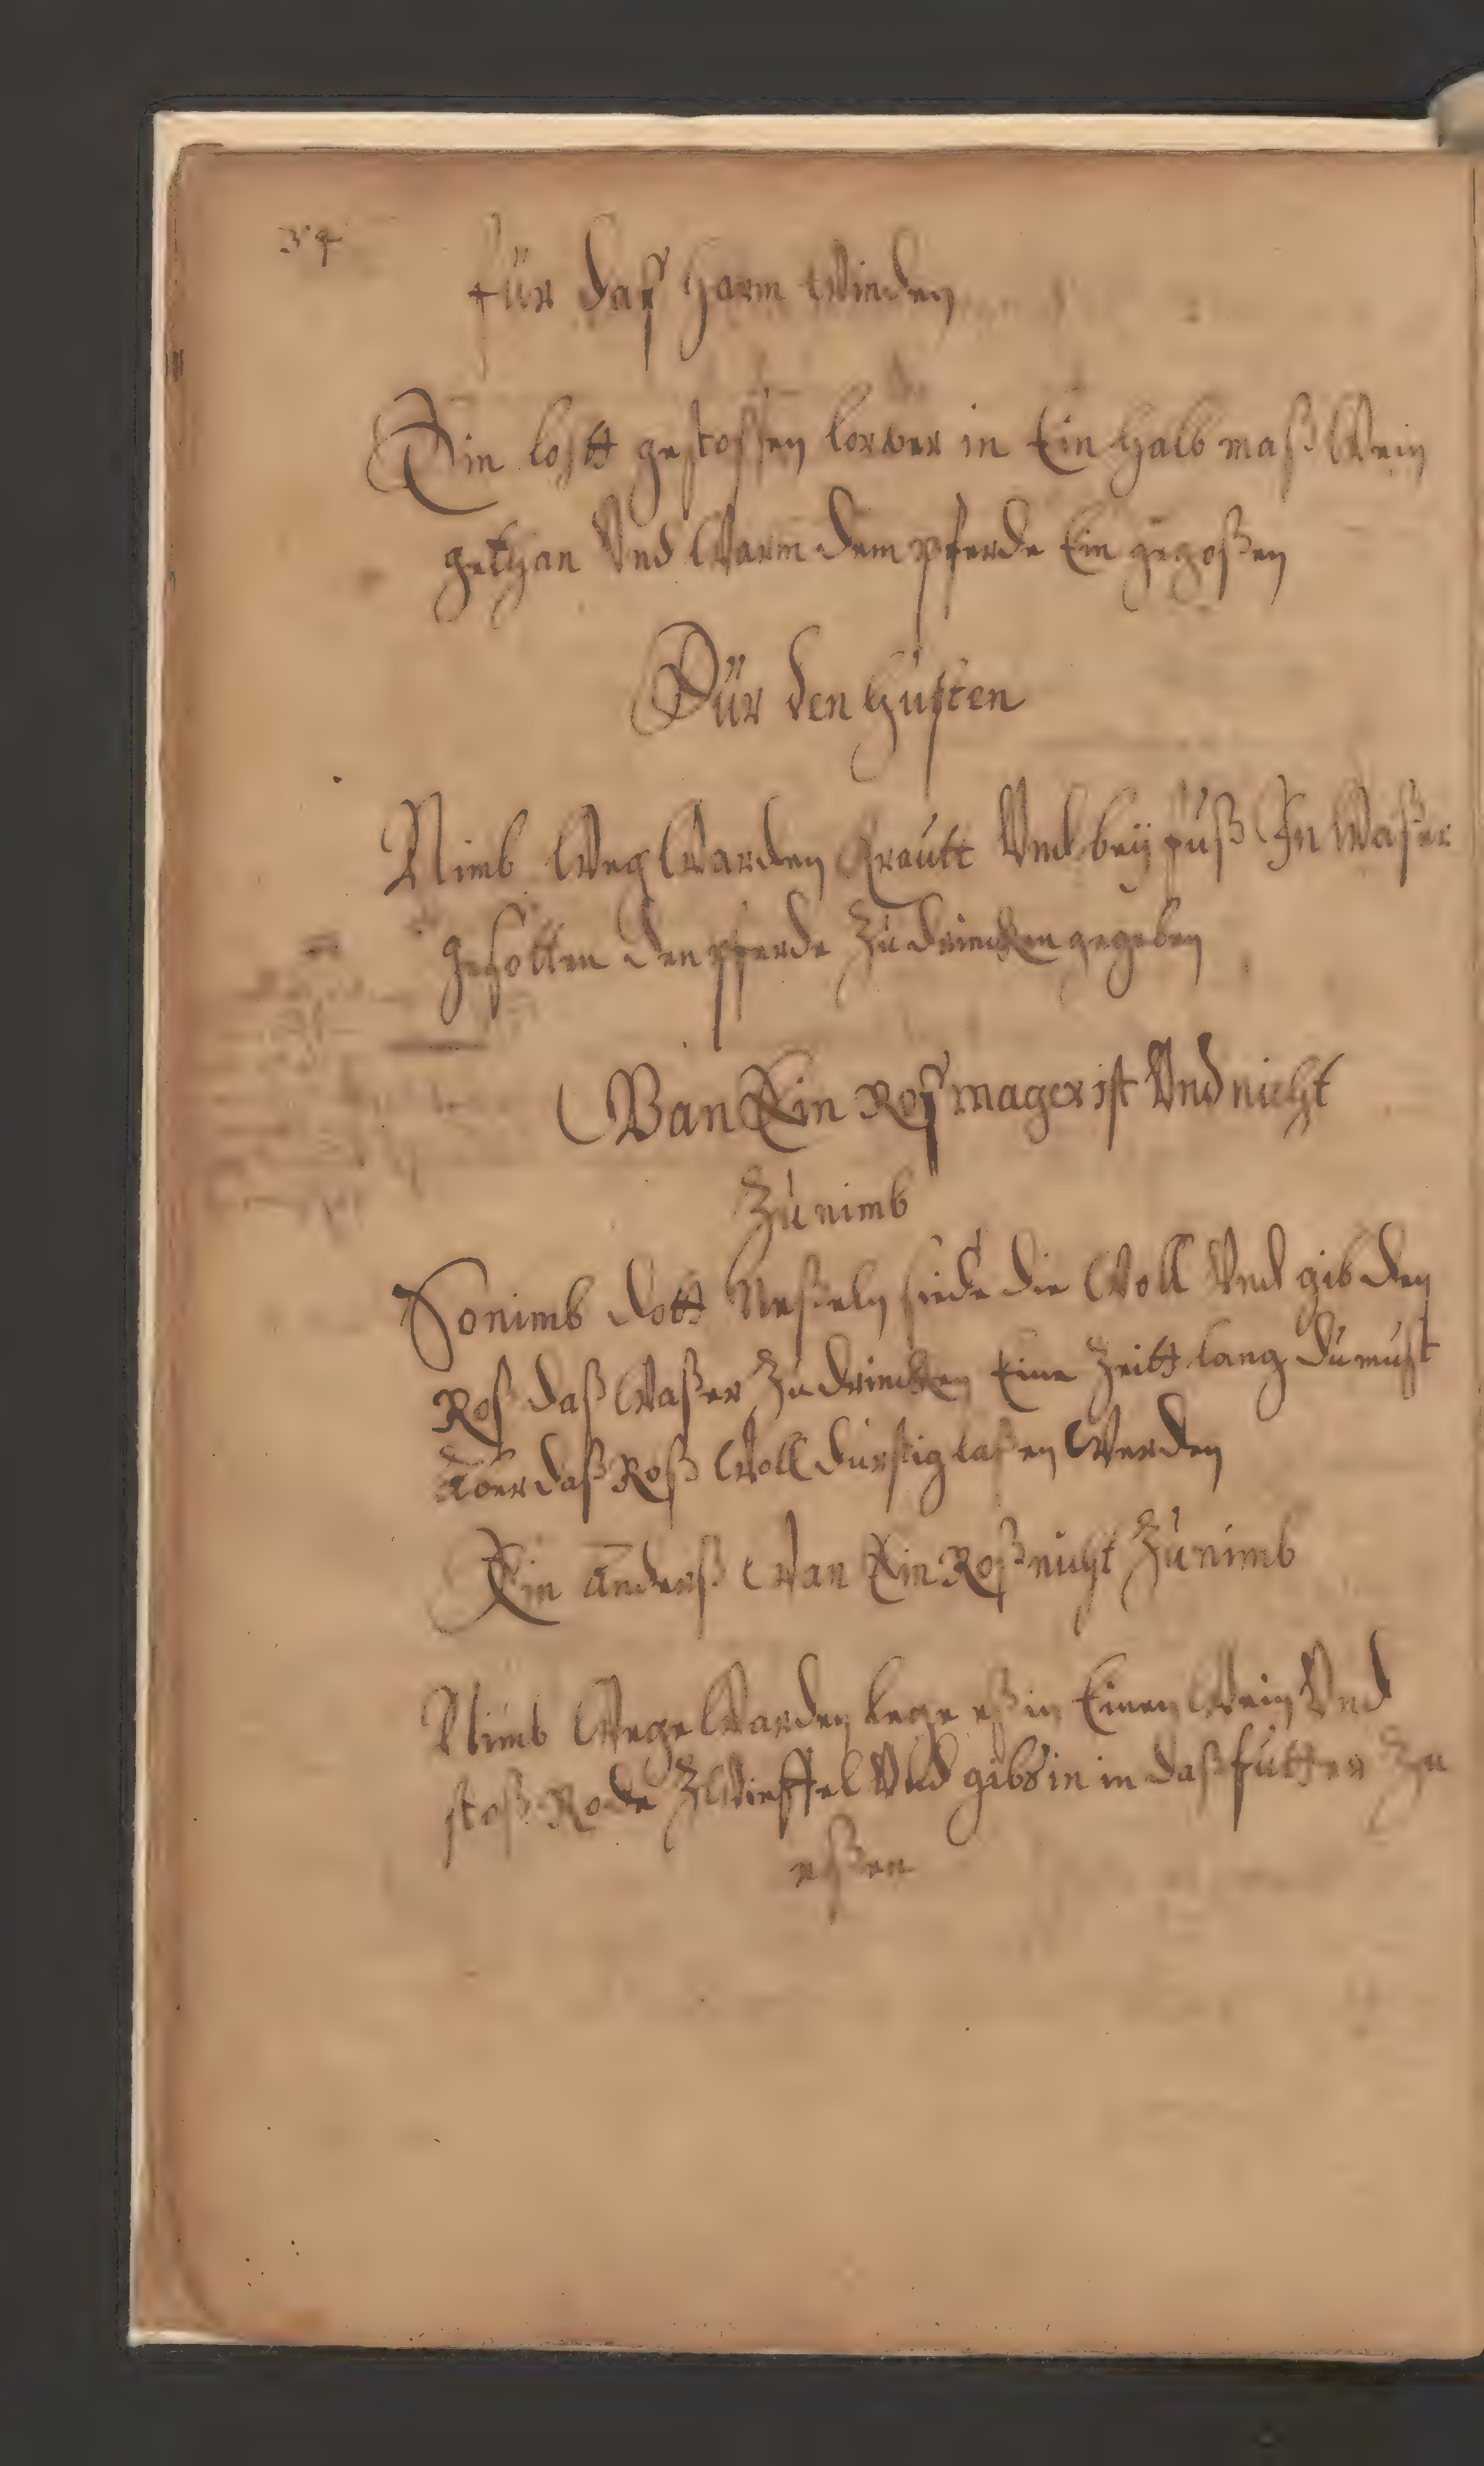 34
für daß harm Winden
Ein lohtt gestossen lorber in Ein halb maß Wein
gethan Vnd Warm dem pferde Ein gegoßen
Vür den husten
Nimb WegWarden Krautt Vnd beÿpuß In Waßer
gesotten den pferde Zu drincken gegeben
Wan Ein Roß mager ist Vnd nicht
Zu nimb
So nimb dott Neßeln siede die Woll Vnd gib den
Roß daß Waßer Zu drincken Eine Zeitt lang du must
aber daß Roß Woll durstig laßen Werden
Ein anderß Wan Ein Roß nicht Zu nimb
Nimb WegeWarden lege eß in Einen Wein Vnd
stoß Rode ZWieffel Vnd gibs in in daß futter Zu
eßen